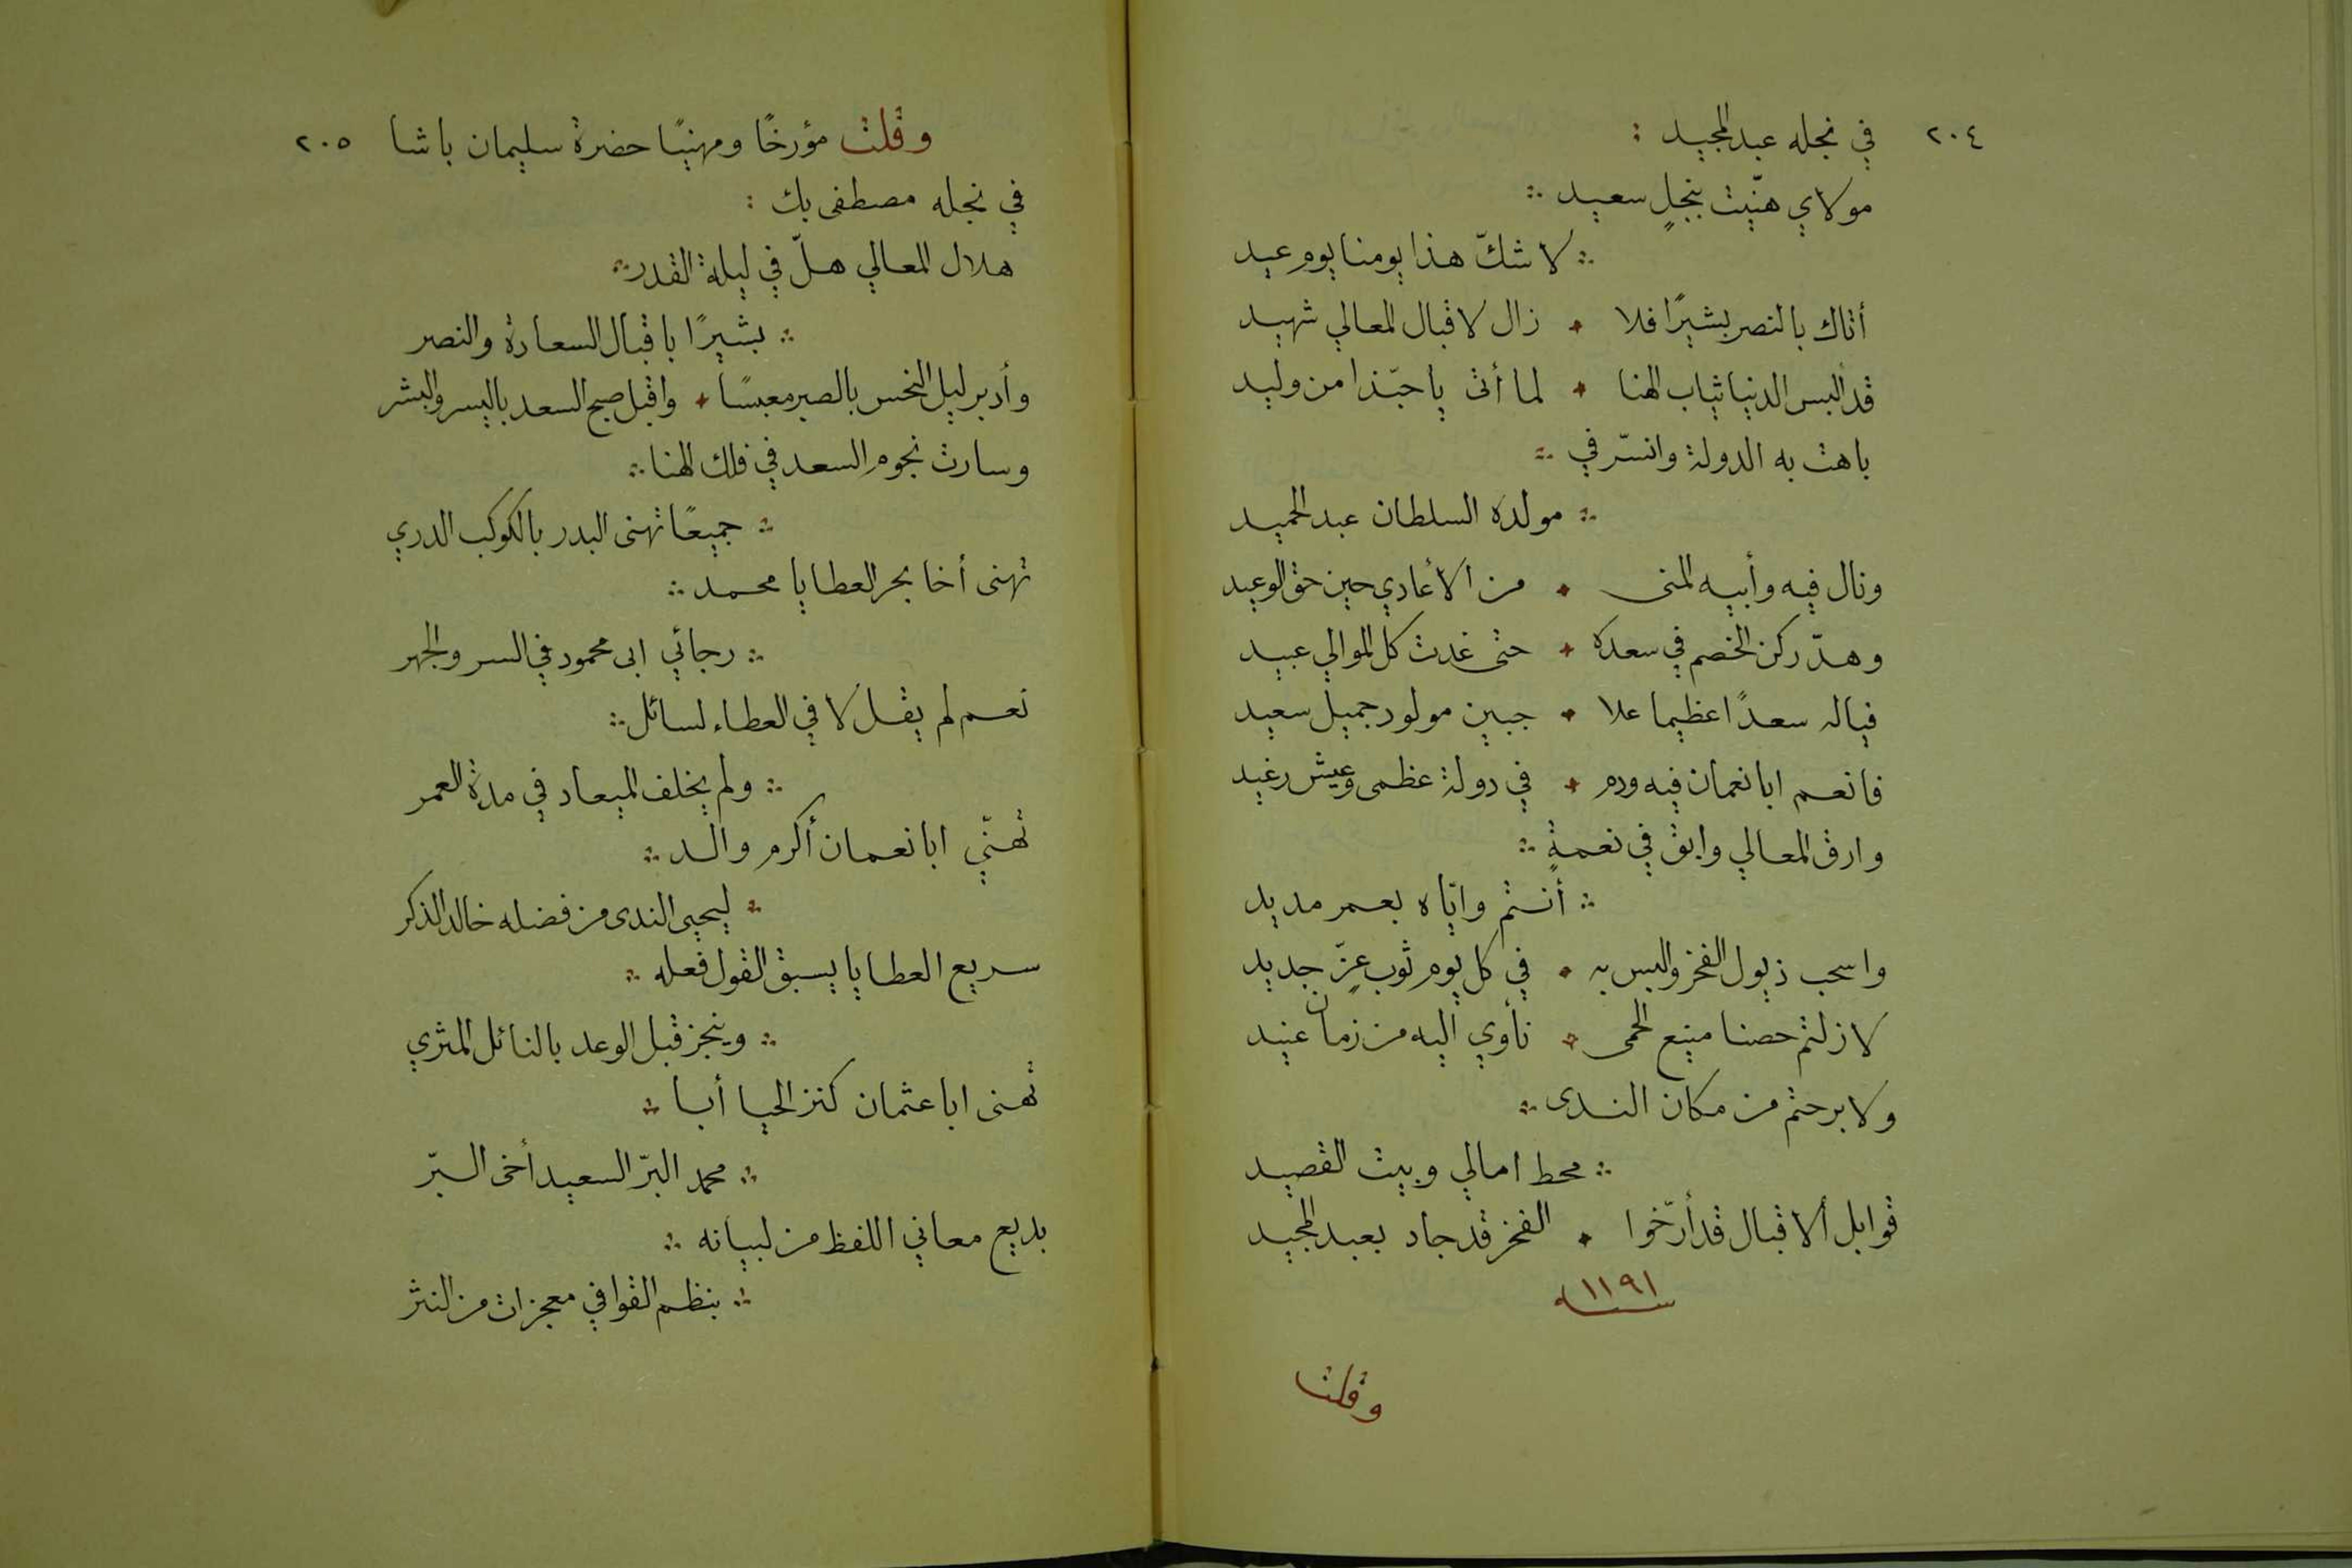 ٢٠٤ في نجله عبد المجيد :
مولاي هنّيت بنجلٍ سعيد ∴
∴ لا شكّ هذا يومنا يوم عيد
أتاك بالنصر بشيرًا فلا ٭ زال لاقبال المعالي شهيد
قد البس الدنيا ثياب الهنا ٭ لما أتى يا حبّذا من وليد
باهت به الدولة وانسرّ في ∴
∴ مولده السلطان عبد الحميد
ونال فيه وأبيه المنى ٭ من الأعادي حين حق الوعيد
وهدّ ركن الخصم في سعده ٭ حتى غدت كل الموالي عبيد
فياله سعدًا عظيما علا ٭ جبين مولود جميل سعيد
فانعم ابا نعمان فيه ودم ٭ في دولة عظمى وعيش رغيد
وارق المعالي وابق في نعمةٍ ∴
∴ أنتم وايّاه بعمر مديد
واسحب ذيول الفخر والبس به ٭ في كل يوم ثوب عزّ جديد
لا زلتم حصنا منيع الحمى ٭ نأوي اليه من زمان عنيد
ولا برحتم من مكان الندى ∴
∴ محط امالي وبيت القصيد
قوابل ألاقبال قد أرّخوا ٭ الفخر قد جاد بعبد المجيد
سنة ١١٩١
وقلت
وقلت مؤرخًا ومهنيًا حضرة سليمان باشا ٢٠٥
في نجله مصطفى بك :
هلال المعالي هلّ في ليلة القدر ∴
∴ بشيرًا باقبال السعادة والنصر
وأدبر ليل النحس بالصبر معبسًا ٭ واقبل صبح السعد باليسر والبشر
وسارت نجوم السعد في فلك الهنا ∴
∴ جميعًا تهنى البدر بالكوكب الدري
تهنى أخا بحر العطايا محمد ∴
∴ رجائي ابى محمود في السر والجهر
نعم لم يقل لا في العطاء لسائل ∴
∴ ولم يخلف الميعاد في مدة العمر
تهنّي ابا نعمان أكرم والد ∴
∴ ليحيى الندى من فضله خالد الذكر
سريع العطايا يسبق القول فعله ∴
∴ وينجز قبل الوعد بالنائل المثري
تهنى ابا عثمان كنز الحيا أبا ∴
∴ محمد البرّ السعيد أخى البرّ
بديع معاني اللفظ من لبيانه ∴
∴ بنظم القوافي معجزات من النثر